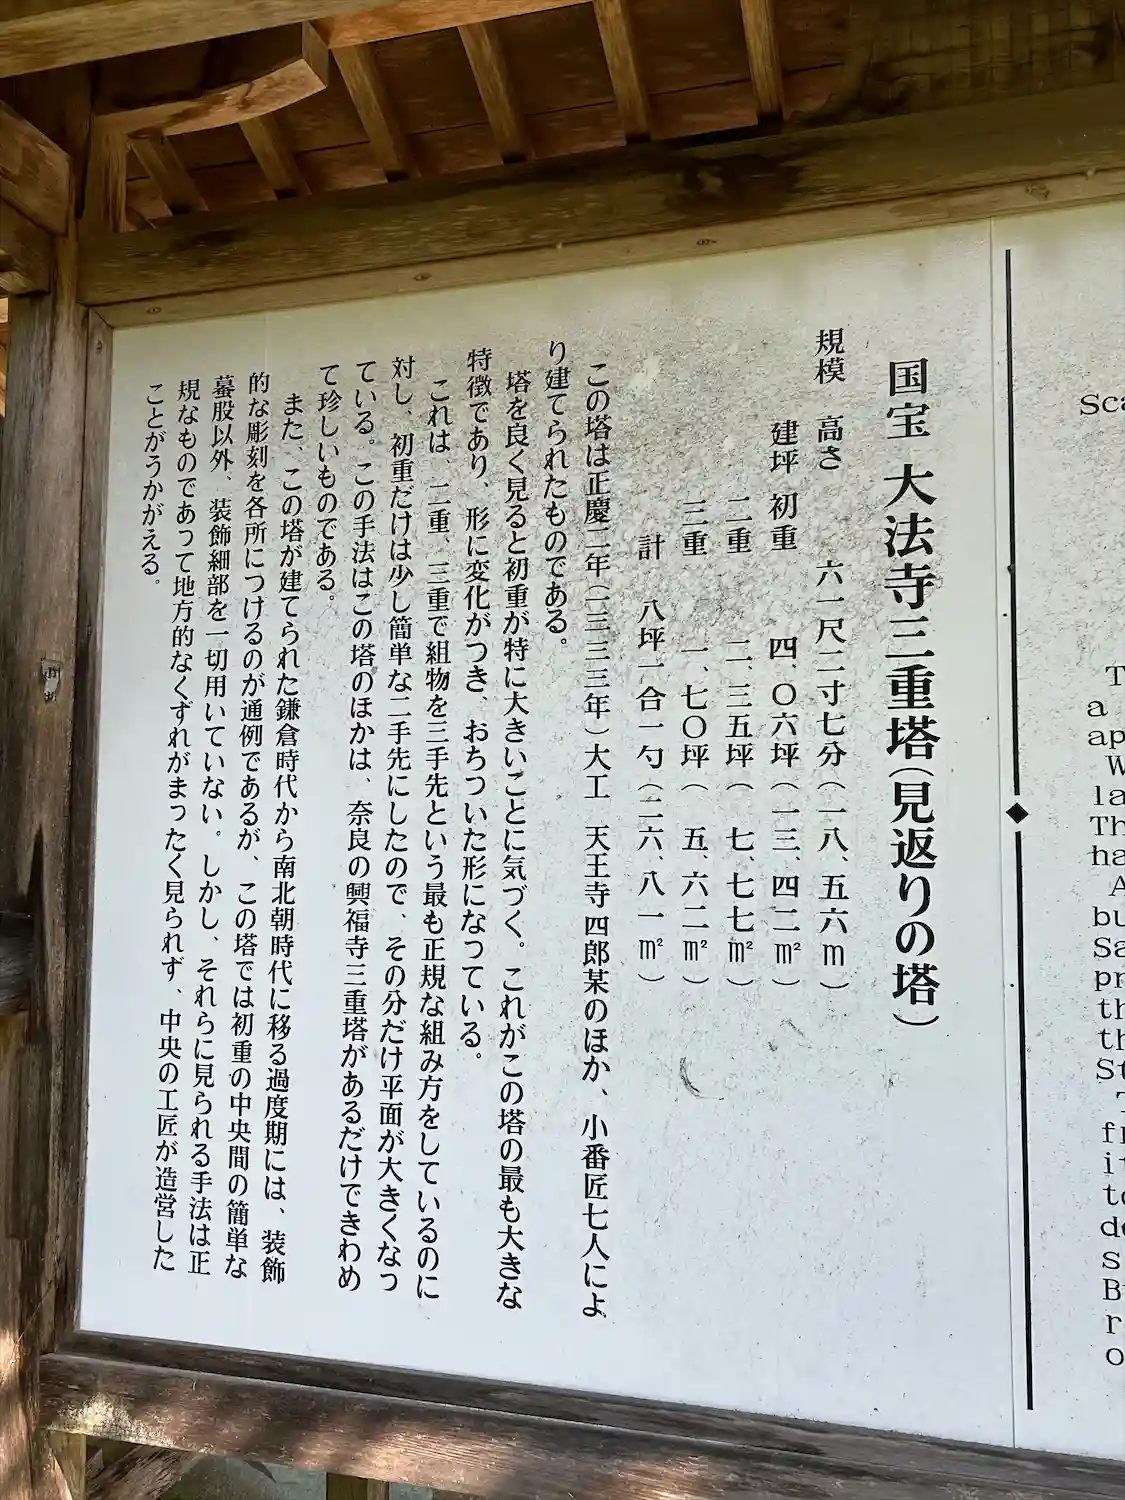 国宝 大法寺三重塔(見返りの塔)
規模 高さ 六一尺二寸七分(一八、五六m)
建坪 初重 四、〇六坪(一三、四二㎡)
二重 二、三五坪(七、七七㎡)
三重 一、七〇坪(五、六二㎡)
計 八坪一合一勺(二六、八一㎡)
この塔は正慶二年(一三三三年)大工 天王寺四郎某のほか、小番匠七人によ
り建てられたものである。
塔を良く見ると初重が特に大きいことに気づく。これがこの塔の最も大きな
特徴であり、形に変化がつき、おちついた形になっている。
これは、二重、三重で組物を三手先という最も正規な組み方をしているのに
対し、初重だけは少し簡単な二手先にしたので、その分だけ平面が大きくなっ
ている。この手法はこの塔のほかは、奈良の興福寺三重塔があるだけできわめ
て珍しいものである。
また、この塔が建てられた鎌倉時代から南北朝時代に移る過度期には、装飾
的な彫刻を各所につけるのが通例であるが、この塔では初重の中央間の簡単な
蟇股以外、装飾細部を一切用いていない。しかし、それらに見られる手法は正
規なものであって地方的なくずれがまったく見られず、中央の工匠が造営した
ことがうかがえる。
Sc
T
a
ap
W
la
Th
ha
A
bu
Sa
pr
th
th
St
T
fr
it
to
de
s
B
r
o